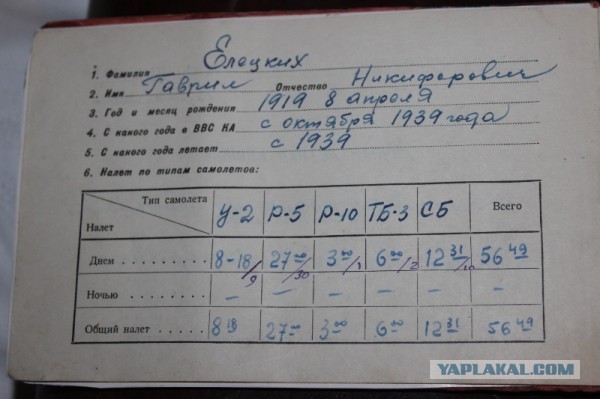 1. Фамилия Елецких
2. Имя Гаврил Отчество Никифорович
3. Год и месяц рождения 1919 8 апреля
4. С какого года в ВВС КА с октября 1939 года
5. С какого года летает с 1939
6. Налет по типам самолетов:
Тип самолета У-2 Р-5 Р-10 ТБ-3 СБ Всего
Налет
Днем 8-18/9 27 00/30 3 00/1 6 00/2 12 31/10 56 49
Ночью — — — — — —
Общий налет 8 18 27 00 3 00 6 00 12 31 56 49
YAPLAKAL.COM